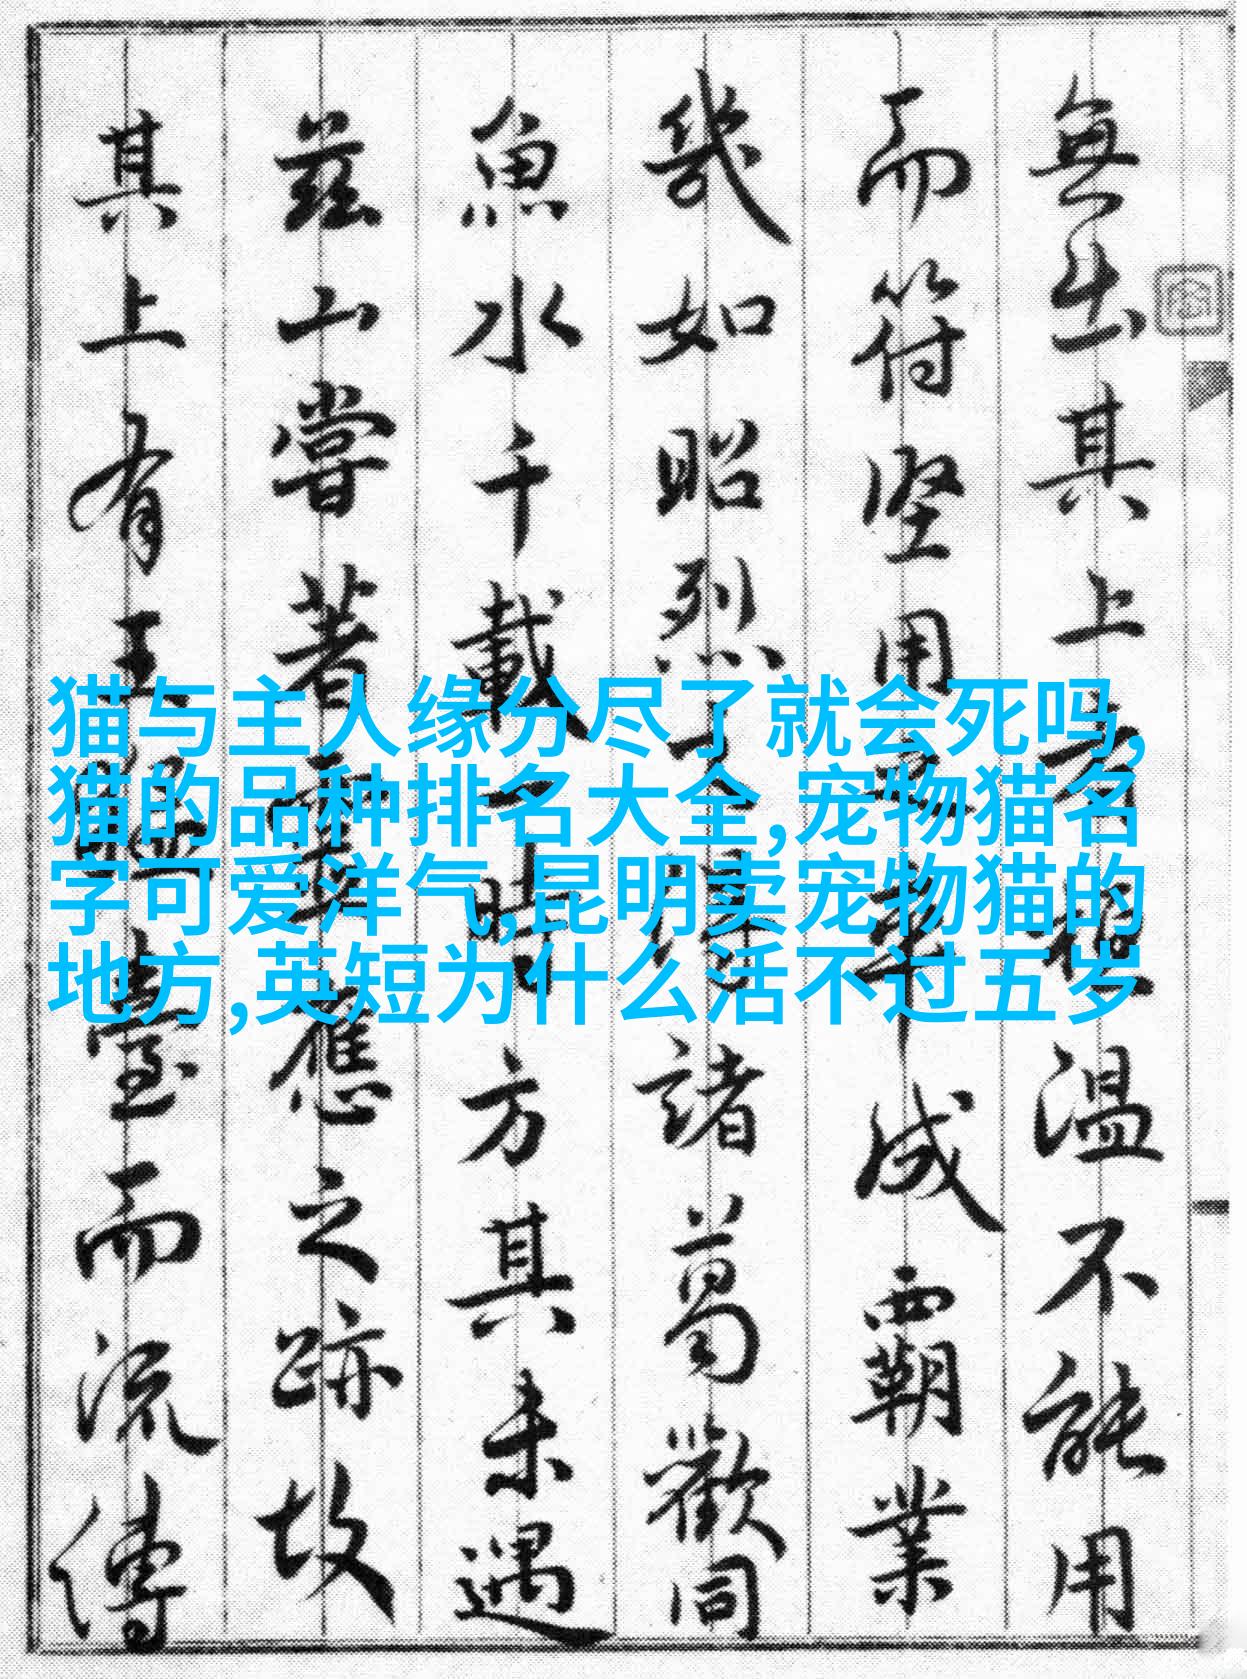 猫与主人缘分尽了就会死吗,
猫的品种排名大全,宠物猫名
字可爱洋气,昆明卖宠物猫的
地方,英短为什么活不过五岁
無出其上者桓温不能用
而符堅用卒成覇業
幾如昭烈之得諸葛歡同
魚水千載一時方其未遇
茲山嘗著靈應之跡故
其上有王臺而流傳